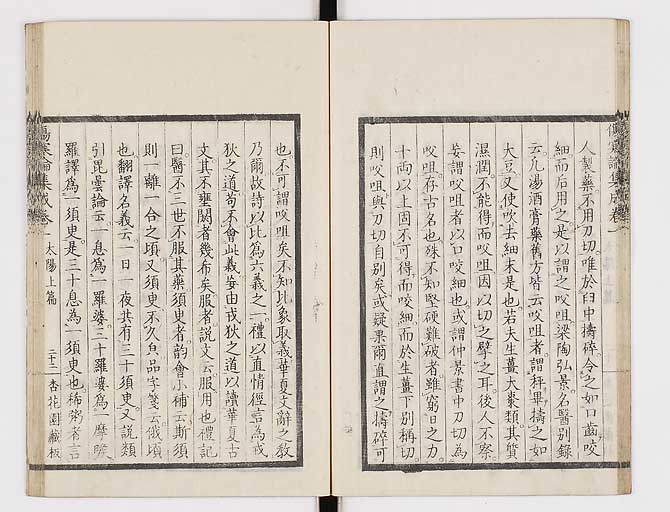 人製藥不用刀切唯於臼中擣碎令之如口齒咬
細而后用之是以謂之㕮咀梁陶弘景名醫別錄
云凡湯酒膏藥舊方皆云㕮咀者謂秤畢擣之如
大豆又使吹去細末是也若夫生薑大棗類其質
濕潤不能得而㕮咀因以切之擘之耳後人不察
妄謂㕮咀者以口咬細也或謂仲景書中刀切為
㕮咀存古名也殊不知堅硬難破者雖窮日之力
十兩以上固不可得而咬細而於生薑下別稱切
則㕮咀與刀切自別矣或疑果爾直謂之擣碎可
也不可謂㕮咀矣不知比象取義華夏文辭之教
乃爾故詩以比為六義之一禮以直情徑言為戎
狄之道苟不會此義妄由戎狄之道以讀華夏古
文其不壅閼者幾布矣服者說文云服用也禮記
曰醫不三世不服其藥須臾者韵會小補云斯須
則一離一合之頃又須臾不久皃品字箋云俄頃
也翻譯名義云一日一夜共有三十須臾又說類
引毘曇論云一息為一羅婆三十羅婆為一摩睺
羅譯為一須臾是三十息為一須臾也稀粥者言
傷寒論集成卷一 太陽上篇 三十二 杏花園藏板